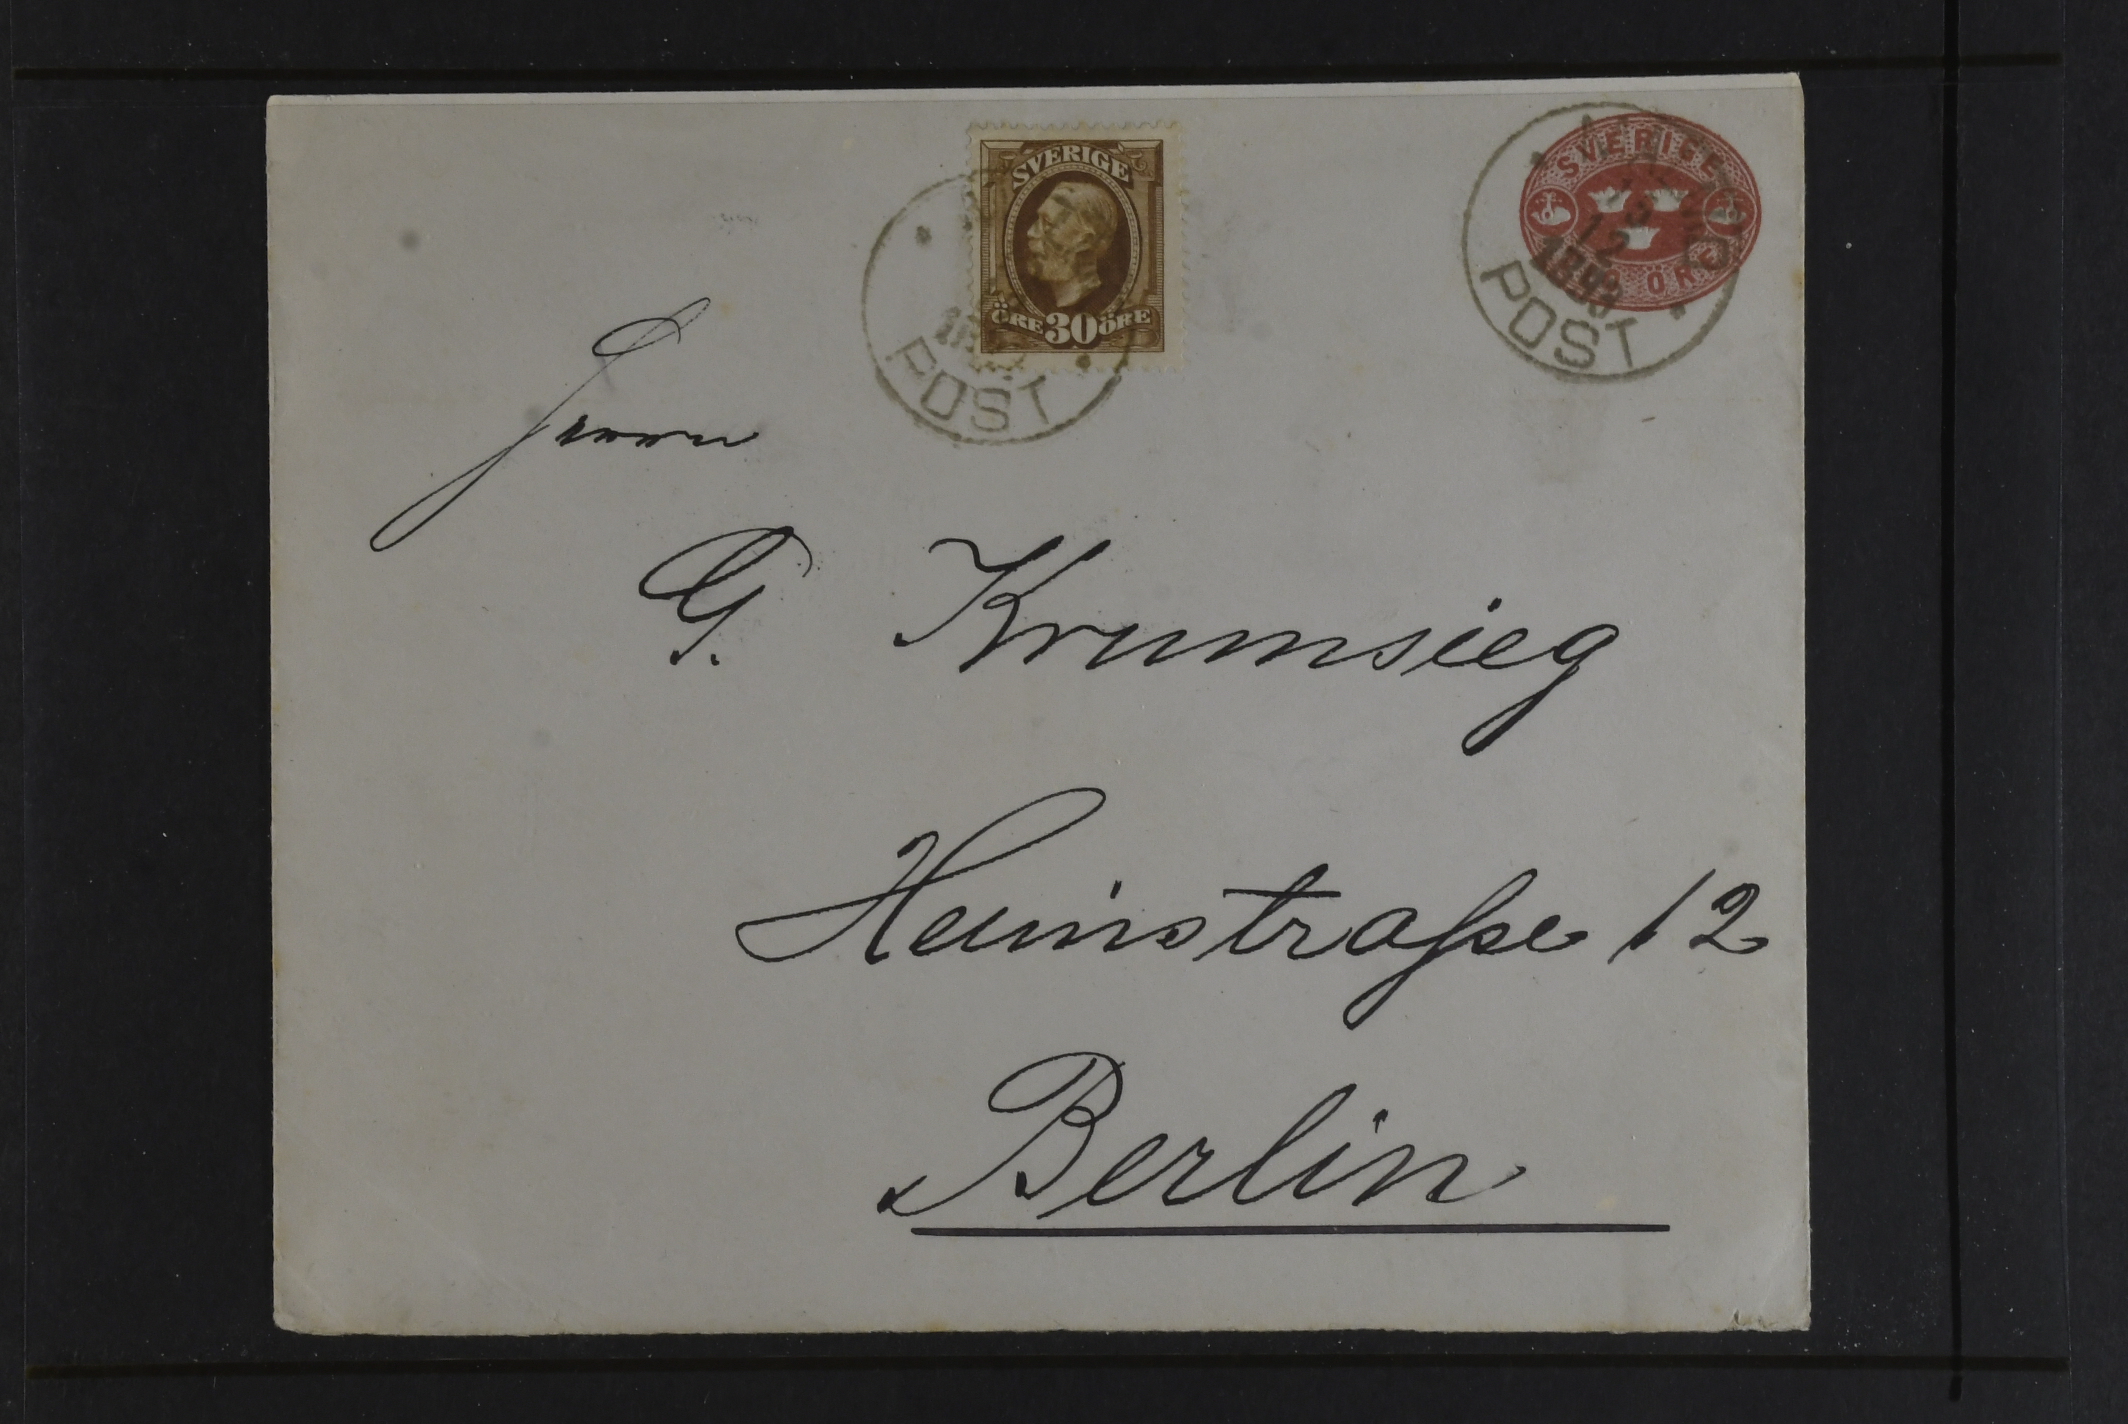 SVERIGE
ÖRE 30 ÖRE
POST
SVERIGE
ÖRE
12
POST
Herrn
G. Krumsieg
Heimstraße 12
Berlin